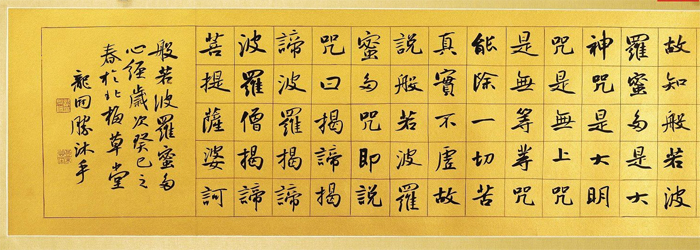 故知般若波
羅蜜多是大
神咒是大明
咒是無上咒
是無等等咒
能除一切苦
真實不虛故
說般若波羅
蜜多咒即說
咒曰揭諦揭
諦波羅揭諦
波羅僧揭諦
菩提薩婆訶
般若波羅蜜多
心經歲次癸巳之
春於北梅草堂
龍開勝沐手